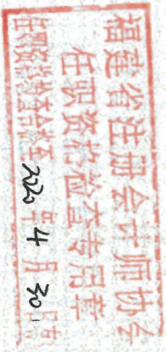 福建省注册会计师协会
任职资格检查专用章
任职资格检查合格至 2020 年 4 月 30 日